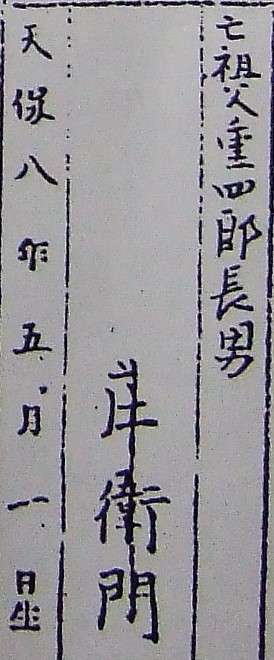 亡祖父重四郎長男
庄衛門
天保八年五月一日生